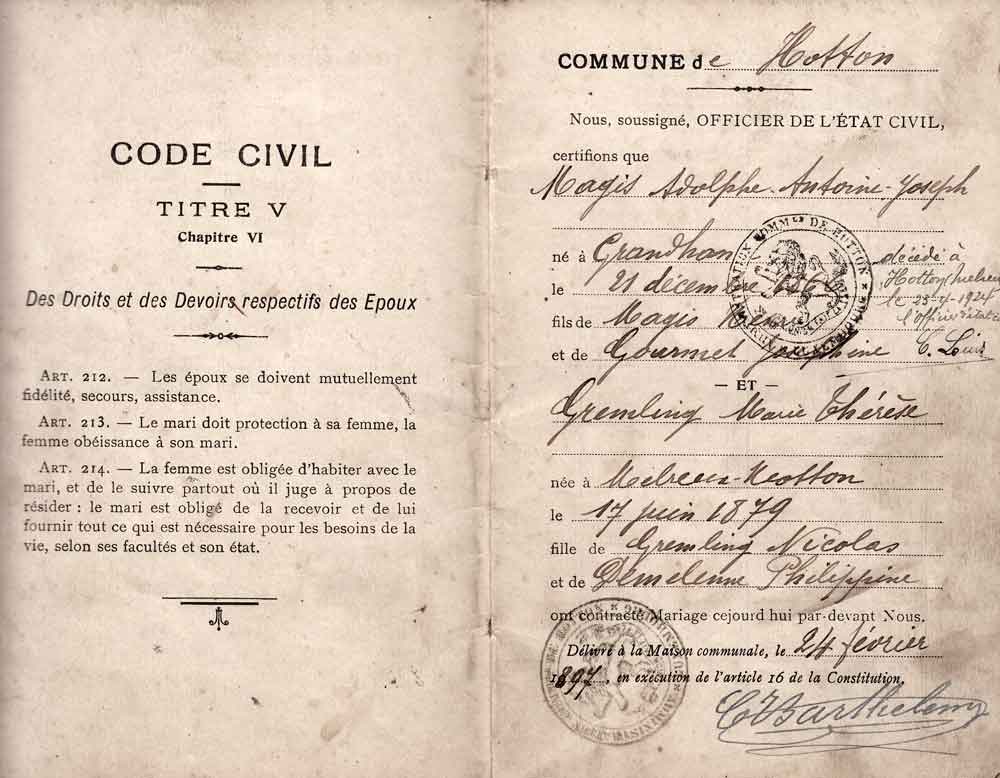 CODE CIVIL
TITRE V
Chapitre VI
Des Droits et des Devoirs respectifs des Epoux
ART. 212. — Les époux se doivent mutuellement
fidélité, secours, assistance.
ART. 213. — Le mari doit protection à sa femme, la
femme obéissance à son mari.
ART. 214. — La femme est obligée d'habiter avec le
mari, et de le suivre partout où il juge à propos de
résider : le mari est obligé de la recevoir et de lui
fournir tout ce qui est nécessaire pour les besoins de la
vie, selon ses facultés et son état.
COMMUNE de Hotton
Nous, soussigné, OFFICIER DE L'ÉTAT CIVIL,
certifions que
Magis Adolphe-Antoine-Joseph
né à Grandhan
le 21 décembre
fils de Magis
et de Gourmet Joséphine
décédé à
Hotton
le 23-4-1924
l'Officier d'état c
— ET —
Gremling Marie Thérèse
née à Melreux-Hotton
le 17 juin 1879
fille de Gremling Nicolas
et de Demelenne Philippine
ont contracté Mariage cejourd'hui par-devant Nous.
Délivré à la Maison communale, le 24 février
1897, en exécution de l'article 16 de la Constitution.
Barthelemy